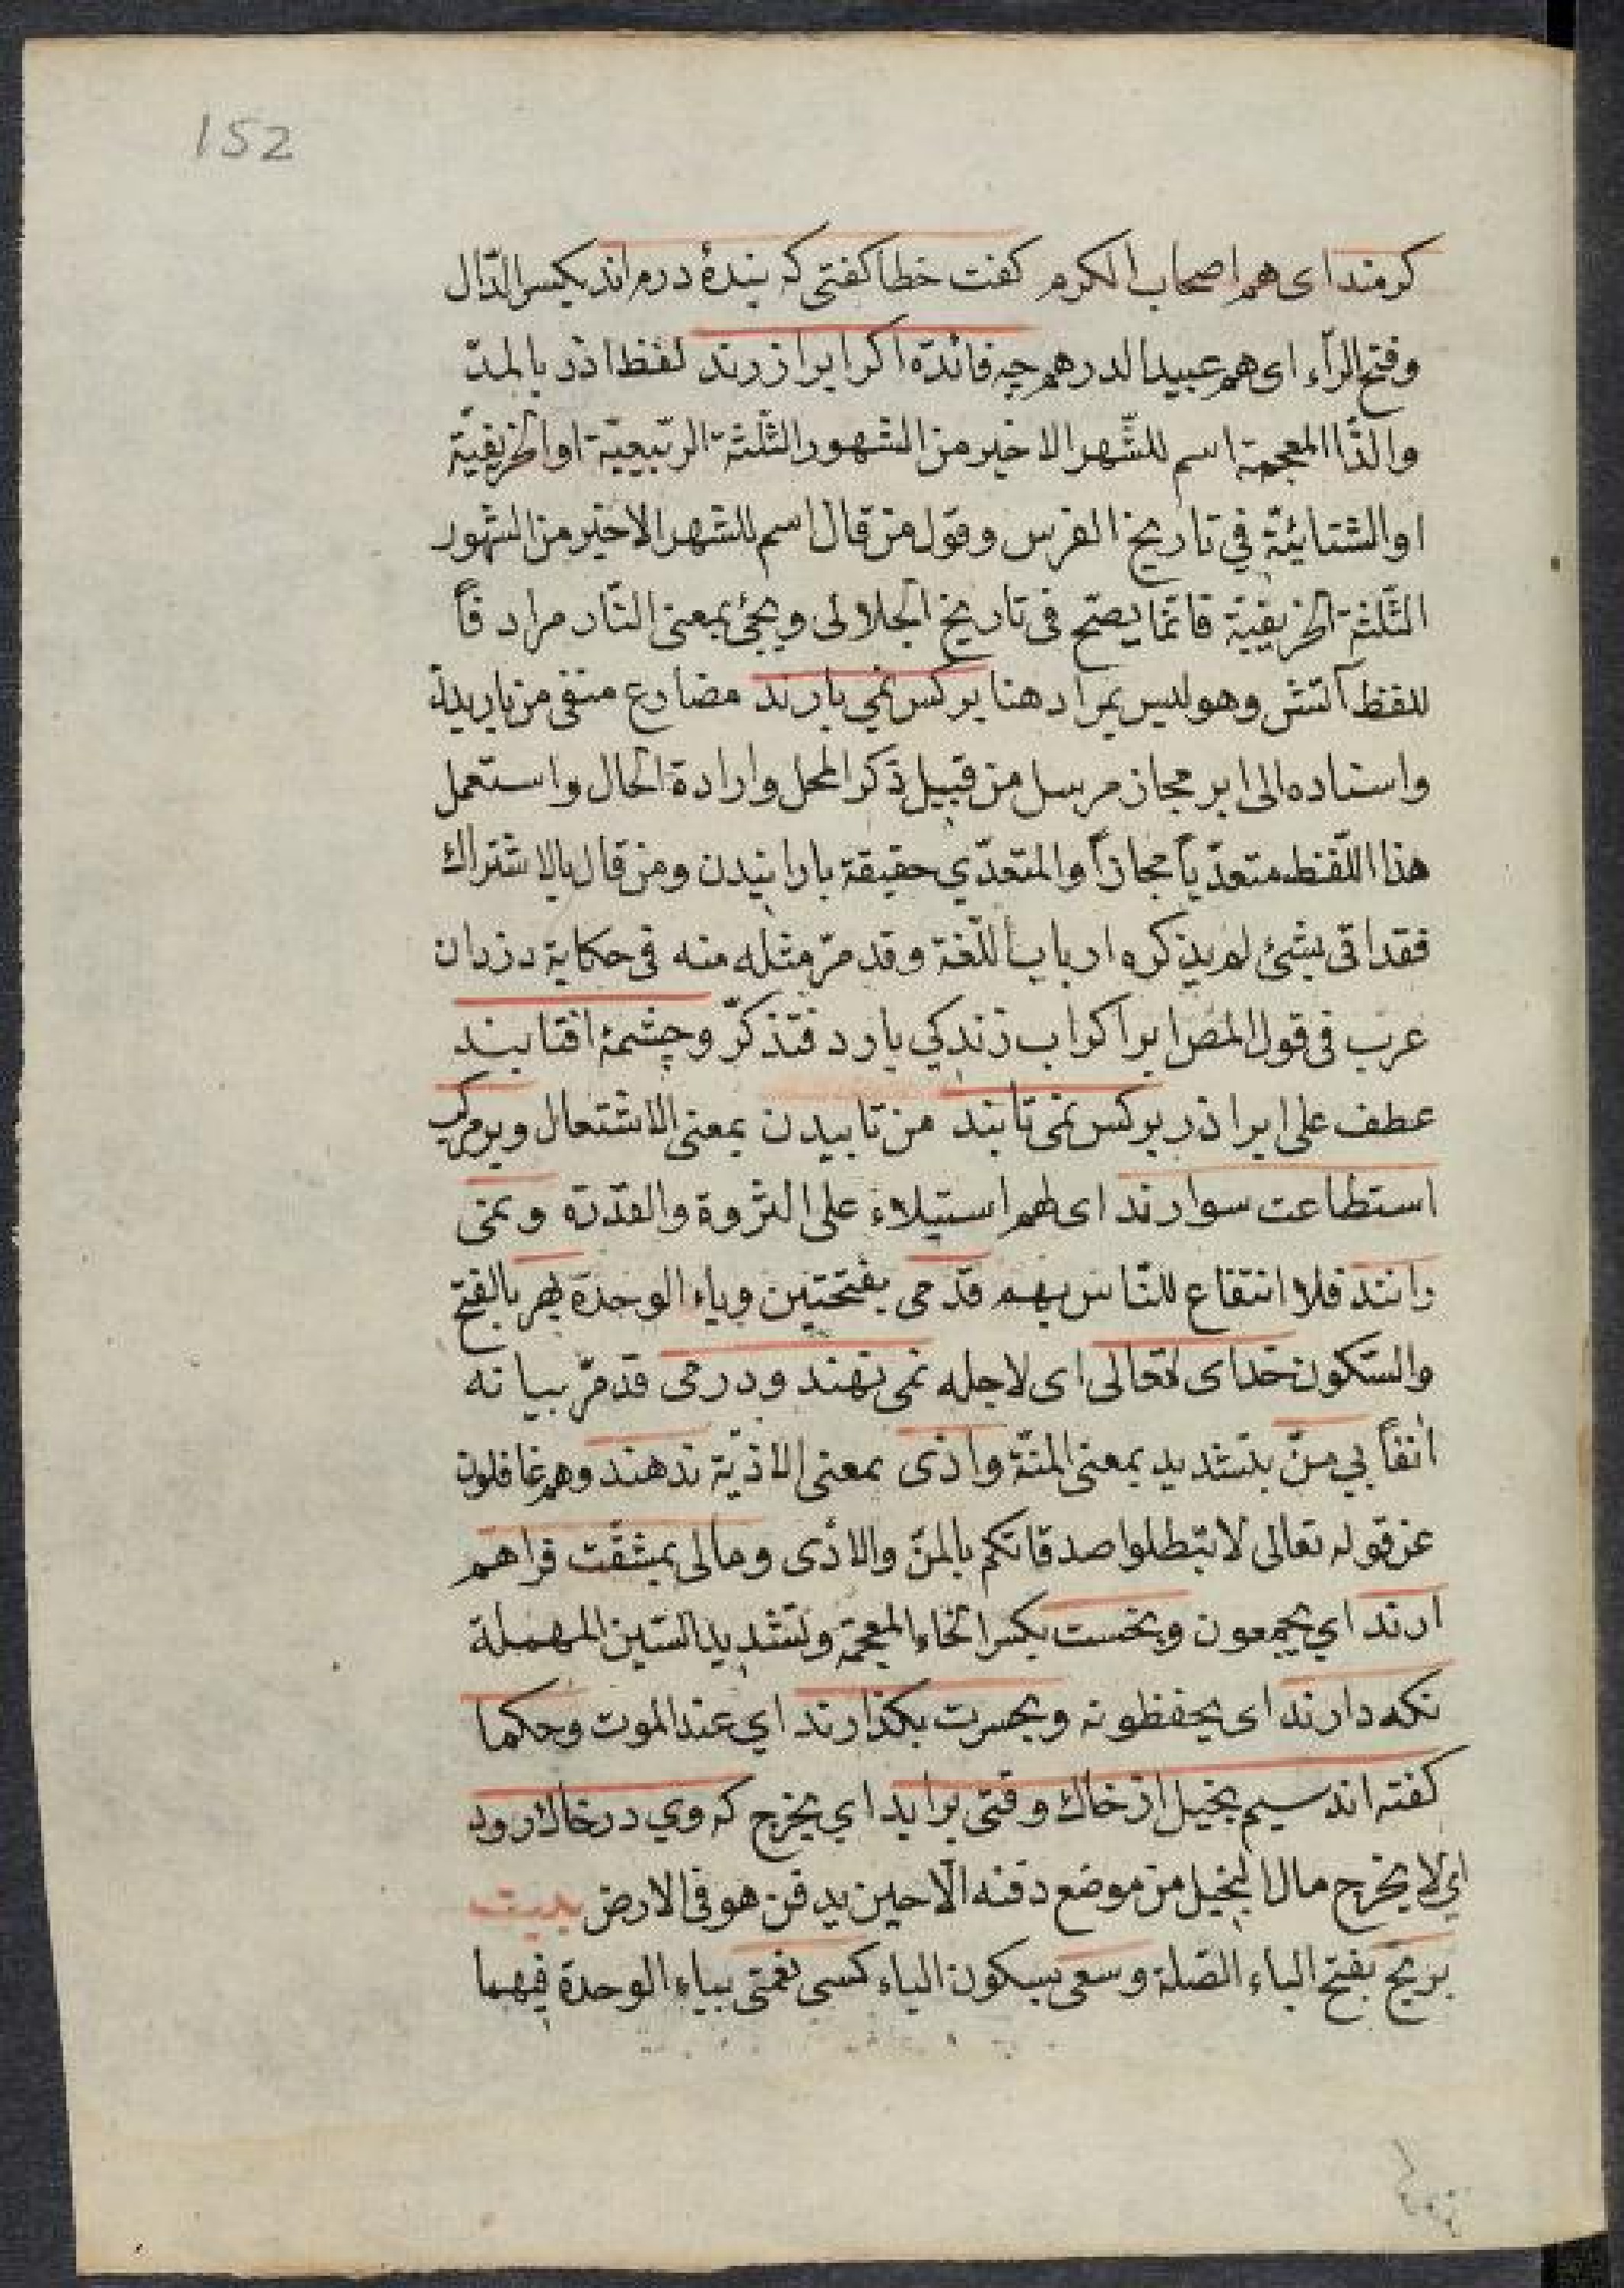 152
كرمند اى هم اصحاب الكرم كفت خطا كفتى كه بندهٔ درم اند بكسر الدّال
وفتح الرّاء اى هم عبيد الدرهم چه فائده اكر ابر ازرند لفظ اذر بالمدّ
والذّا المعجمة اسم للشّهر الاخير من الشهور الثلثة الربّيعيّة او الخريفيّة
او الشتائيّة في تاريخ الفرس وقول من قال اسم للشهر الاخير من الشهور
الثّلثة الخريفيّة فانّما يصحّ فى تاريخ الجلالى ويجئ بمعنى النّار مرادفاً
للفظ آتش وهو ليس بمراد هنا بركس نمي بارند مضارع منفى من باريدن
واسناده الى ابر مجاز مرسل من قبيل ذكر المحل وارادة الحال واستعمل
هذا اللّفظ متعدّياً مجازاً والمتعدّي حقيقة بارانيدن ومن قال بالاشتراك
فقد اتى بشئ لم يذكره ارباب اللّغة وقد مرّ مثله منه فى حكاية دزدان
عرب فى قول المص ابر اكر اب زندكي بارد فتذكرّ وچشمهٔ افتابند
عطف على ابر اذر بركس نمى تابند من تابيدن بمعنى الاشتعال وبر مركب
استطاعت سوارند اى لهم استيلاء على الثروة والقدرة ونمى
رانند فلا انتفاع للنّاس بهم قدمى بفتحتين وياء الوحدة بهر بالفتح
والسّكون خداى تعالى اى لاجله نمى نهند ودرمى قد مرّ بيانه
انفاً بي منّ بتشديد بمعنى المنّة واذى بمعنى الاذيّة ندهند وهم غافلون
عن قوله تعالى لا تبطلوا صدقاتكم بالمنّ والاذى ومالى بمشقّت فراهم
ارند اي يجمعون وبخست بكسر الخاء المعجمة وتشديد السّين المهملة
نكه دارند اى يحفظونه وبحسرت بكذارند اي عند الموت وحكما
كفته اند سيم بخيل از خاك وقتى برايد اي يخرج كه وي در خاك رود
اي لا يخرج مال البخيل من موضع دفنه الّا حين يدفن هو فى الارض بيت
برنج بفتح الباء الصّلة وسعى بسكون الياء كسى نعمتى بياء الوحدة فيهما